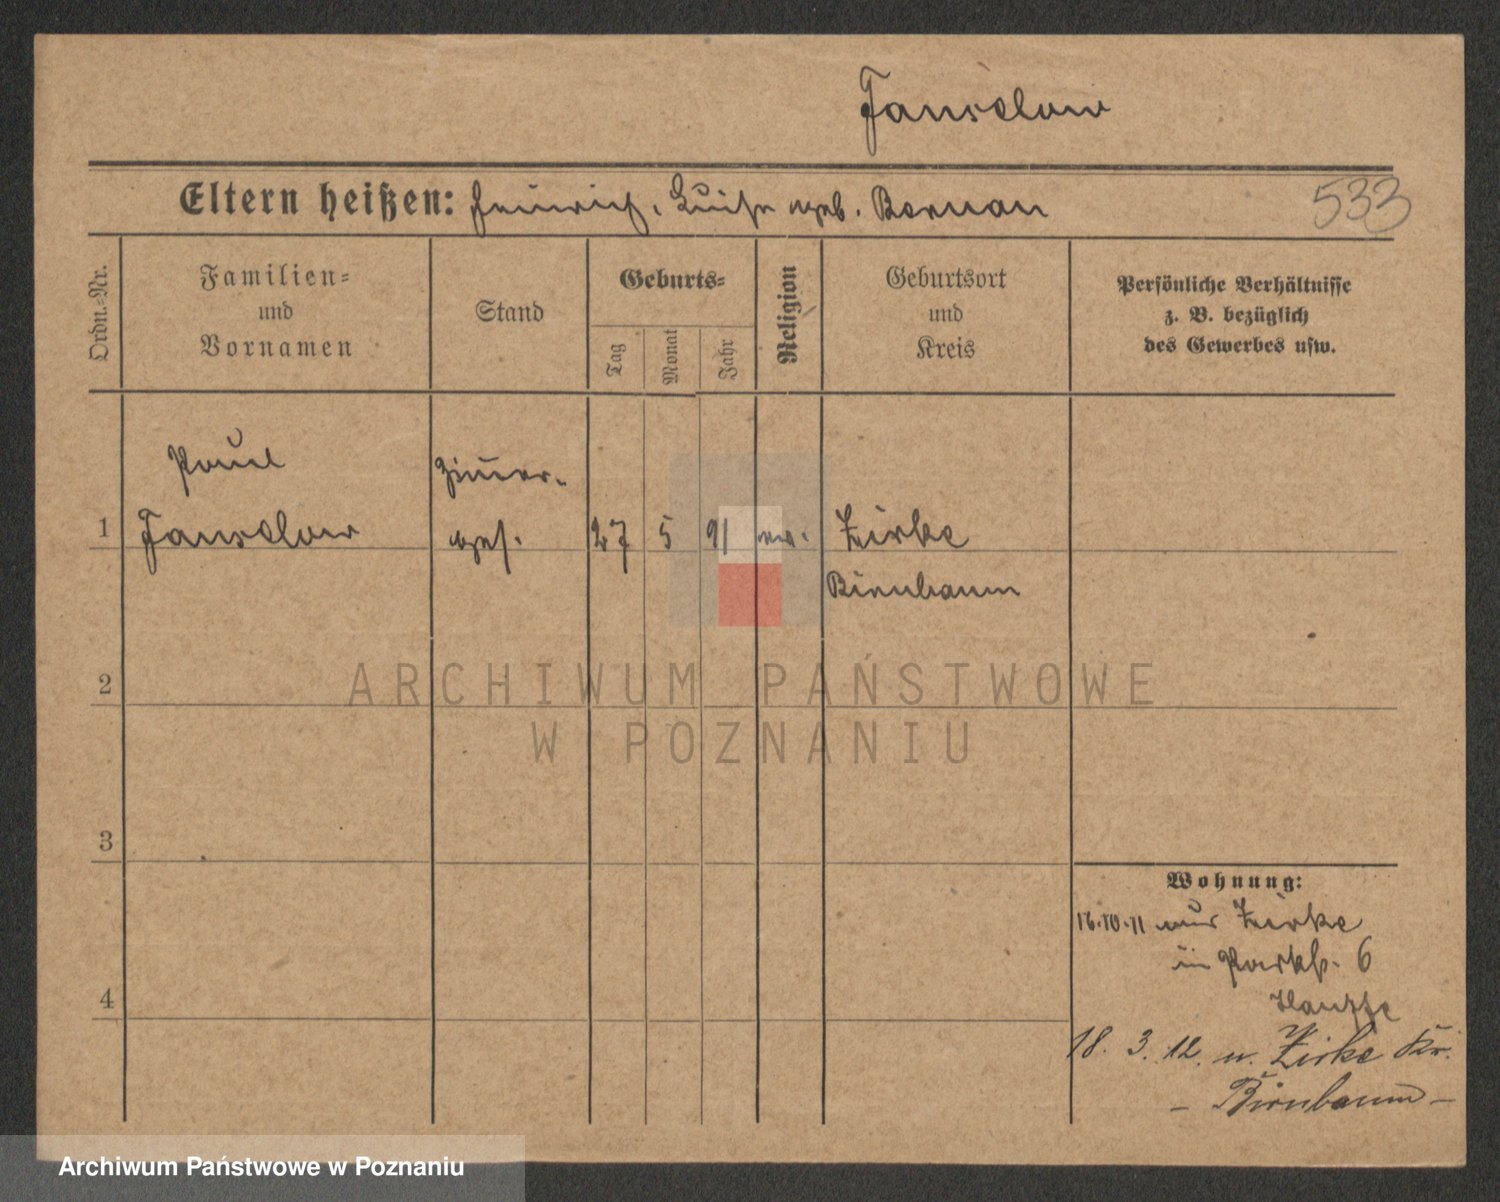 Fanselow
Eltern heißen: Heinrich, Luise geb. Bernau
533
Ordn.-Nr.
Familien-
und
Vornamen
Stand
Geburts-
Tag
Monat
Jahr
Religion
Geburtsort
und
Kreis
Persönliche Verhältnisse
z. B. bezüglich
des Gewerbes usw.
1
Paul
Fanselow
Zimer-
ges.
27
5
91
ev.
Zirke
Birnbaum
2
3
4
Wohnung:
16.10.11 aus Zirke
in Parkstr. 6
18. 3. 12. n. Zirke Kr.
- Birnbaum -
ARCHIWUM PAŃSTWOWE
W POZNANIU
Archiwum Państwowe w Poznaniu